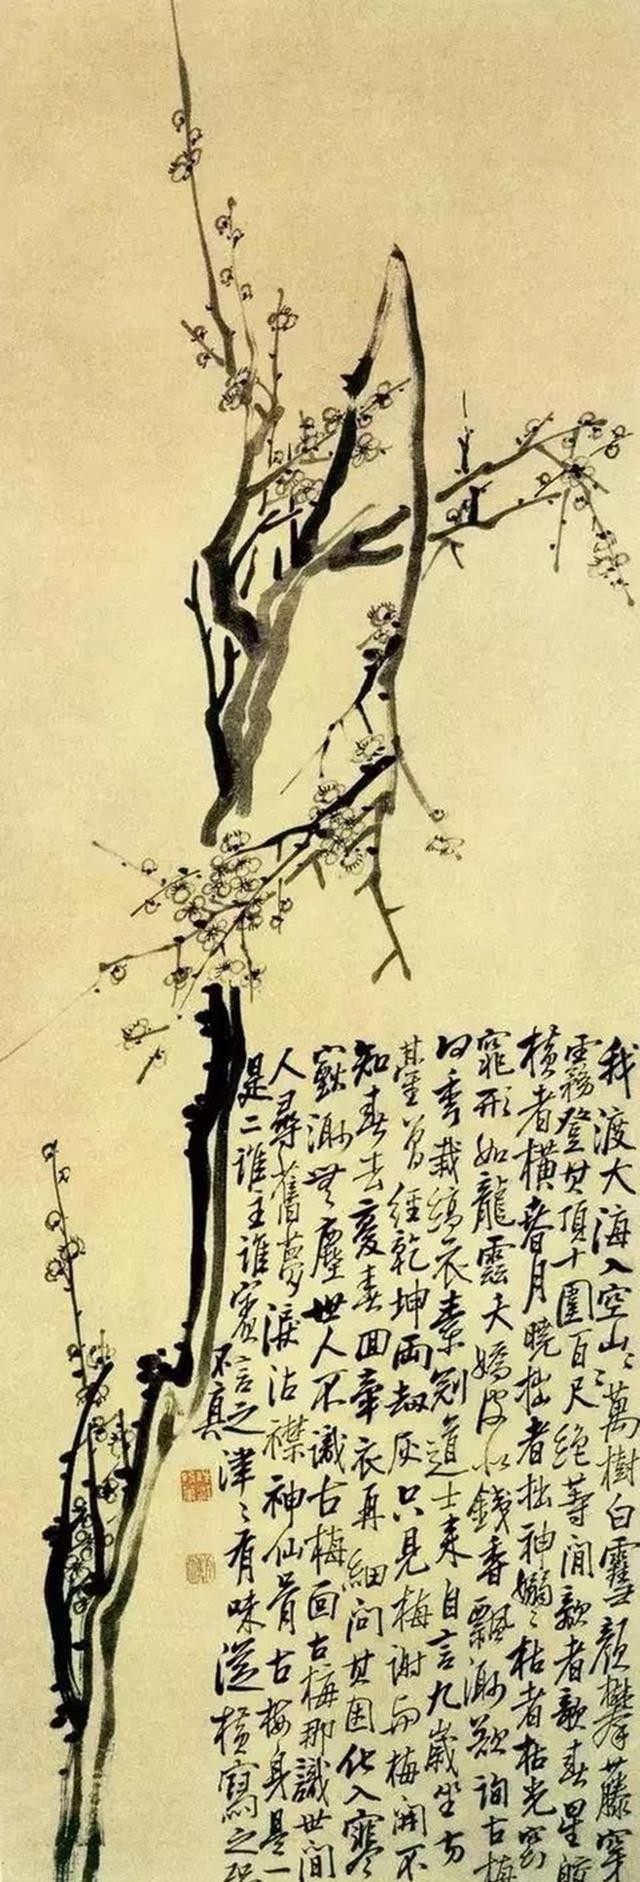 我渡大海入空山々萬樹白雪顔攀藤穿
霧登其頂十圍百尺絕等閒欹者欹春星皎
橫者橫春月曉拙者拙神嫋々枯者枯光窈
窕形如龍靈夭嬌皮如錢香飄渺欲詢古梅
何季栽縞衣素冠道士來自言九歲坐方
臺曾經乾坤兩劫灰只見梅謝與梅開不
知春去處春回牽衣再細問其因化入寥
寂渺無塵世人不識古梅面古梅那識世間
人尋舊夢淚沾襟神仙骨古梅身是一
是二誰主誰賓言之津々有味從橫寫之恐
不真